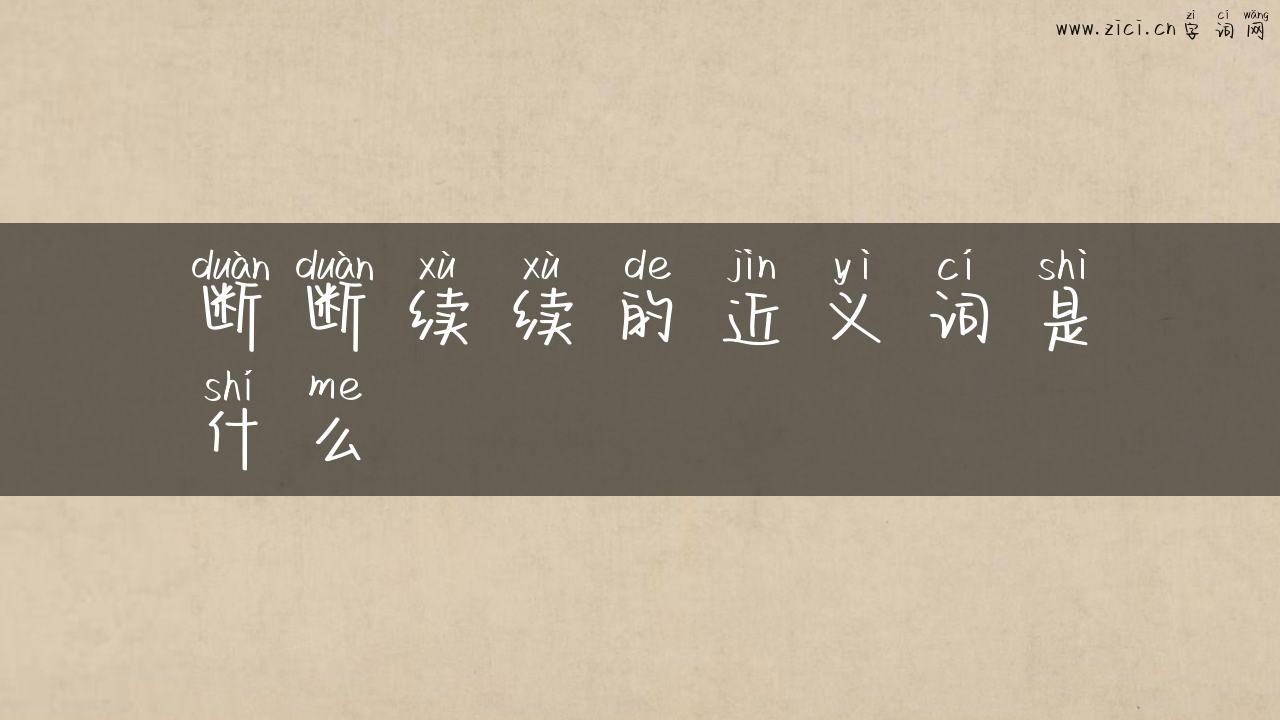 zì cí wǎng
www.zici.cn 字词网
duàn duàn xù xù de jìn yì cí shì
断断续续的近义词是
shí me
什么